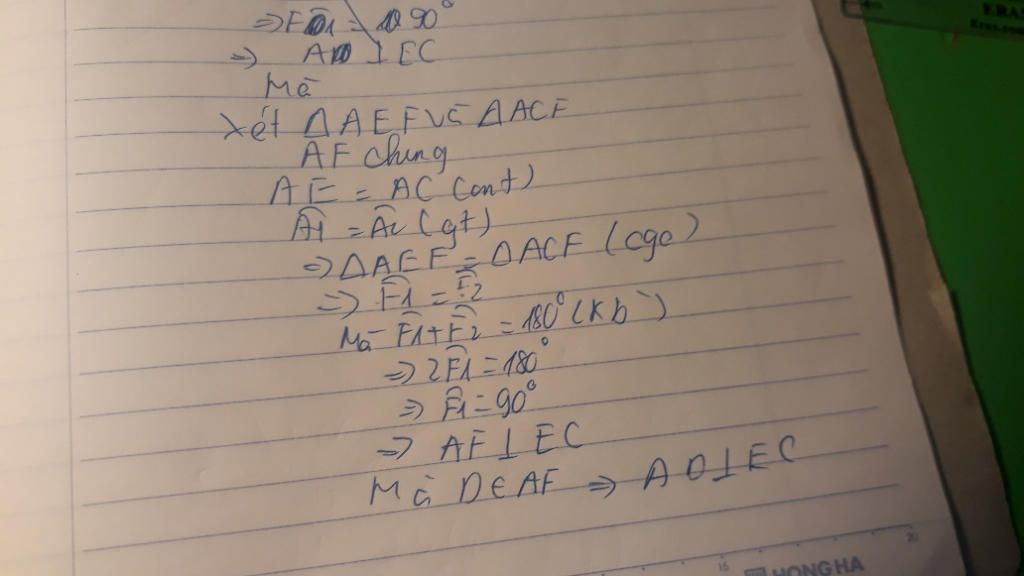 ⇒ F̂1 = 90°
⇒ AD ⊥ EC
Mà
Xét ΔAEF VÊ ΔACF
AF chung
AE = AC (cmt)
Â1 = Â2 (gt)
⇒ ΔAEF = ΔACF (cgc)
⇒ F̂1 = F̂2
Mà F̂1 + F̂2 = 180° (Kb)
⇒ 2F̂1 = 180°
⇒ F̂1 = 90°
⇒ AF ⊥ EC
Mà D∈AF ⇒ AD ⊥ EC
15 20
HONG HA
ERAS